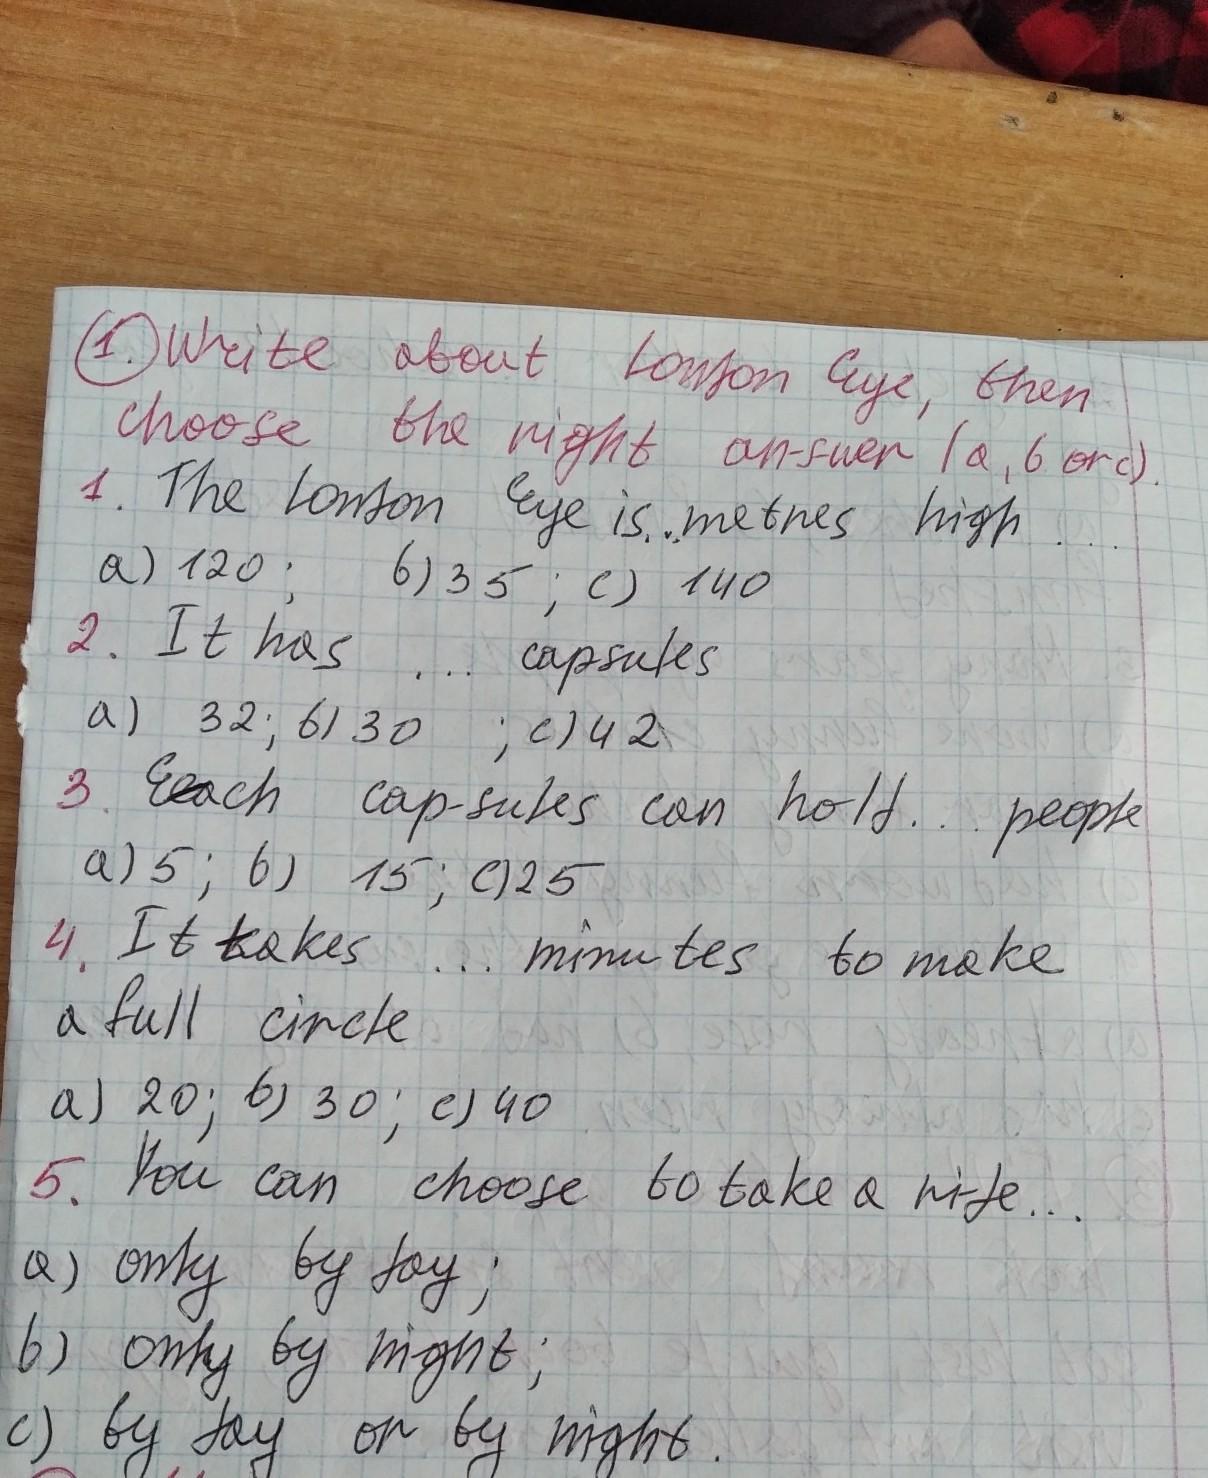 1. Write about London Eye, then
choose the right answer (a, b or c).
1. The London Eye is... metres high ...
a) 120; b) 35; c) 140
2. It has ... capsules
a) 32; b) 30 ; c) 42
3. Each capsules can hold... people
a) 5; b) 15; c) 25
4. It takes ... minutes to make
a full circle
a) 20; b) 30; c) 40
5. You can choose to take a ride...
a) only by day;
b) only by night;
c) by day or by night.